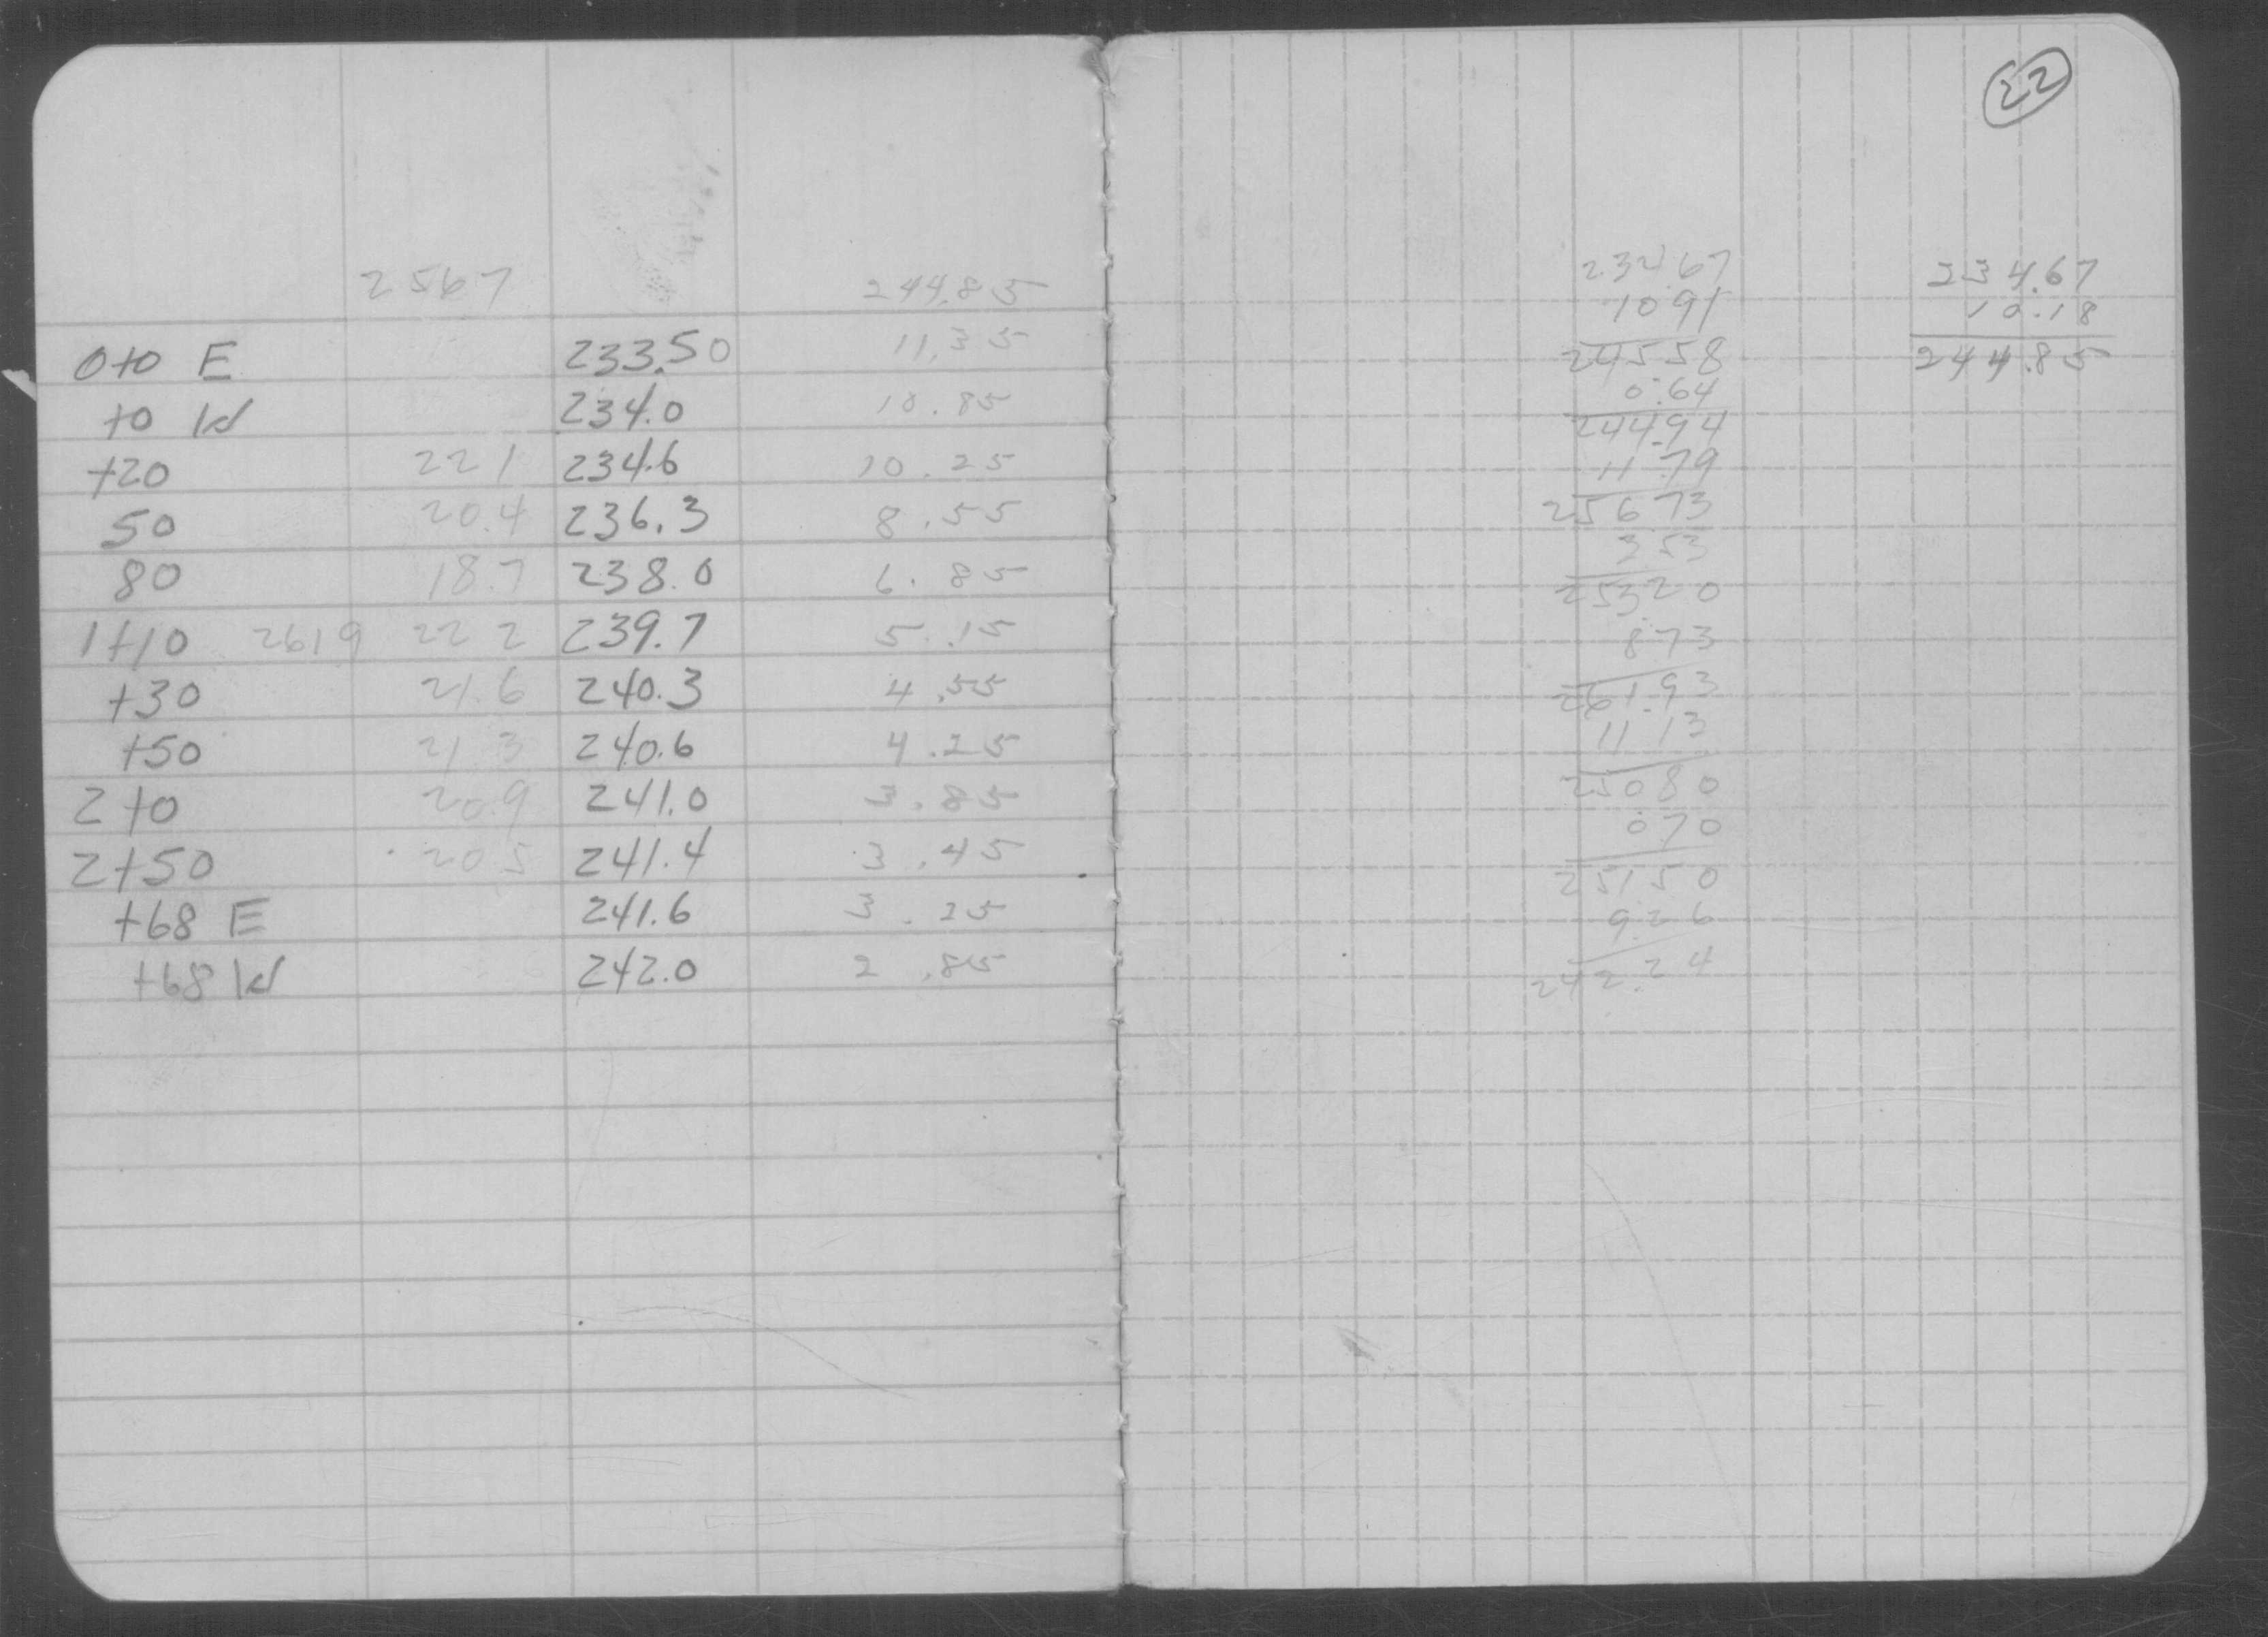 22
2567 244.85
0+0 E 233.50 11.35
+0 Id 234.0 10.85
+20 221 234.6 10.25
50 20.4 236.3 8.55
80 18.7 238.0 6.85
1+10 2619 22 2 239.7 5.15
+30 21.6 240.3 4.55
+50 21.3 240.6 4.25
2+0 20.9 241.0 3.85
2+50 20.5 241.4 3.45
+68 E 241.6 3.25
+68 Id 242.0 2.85
1091
24558
0.64
244.94
11.79
25673
353
25320
873
261.93
11 13
25080
070
25150
926
242.24
234.67
10.18
244.85